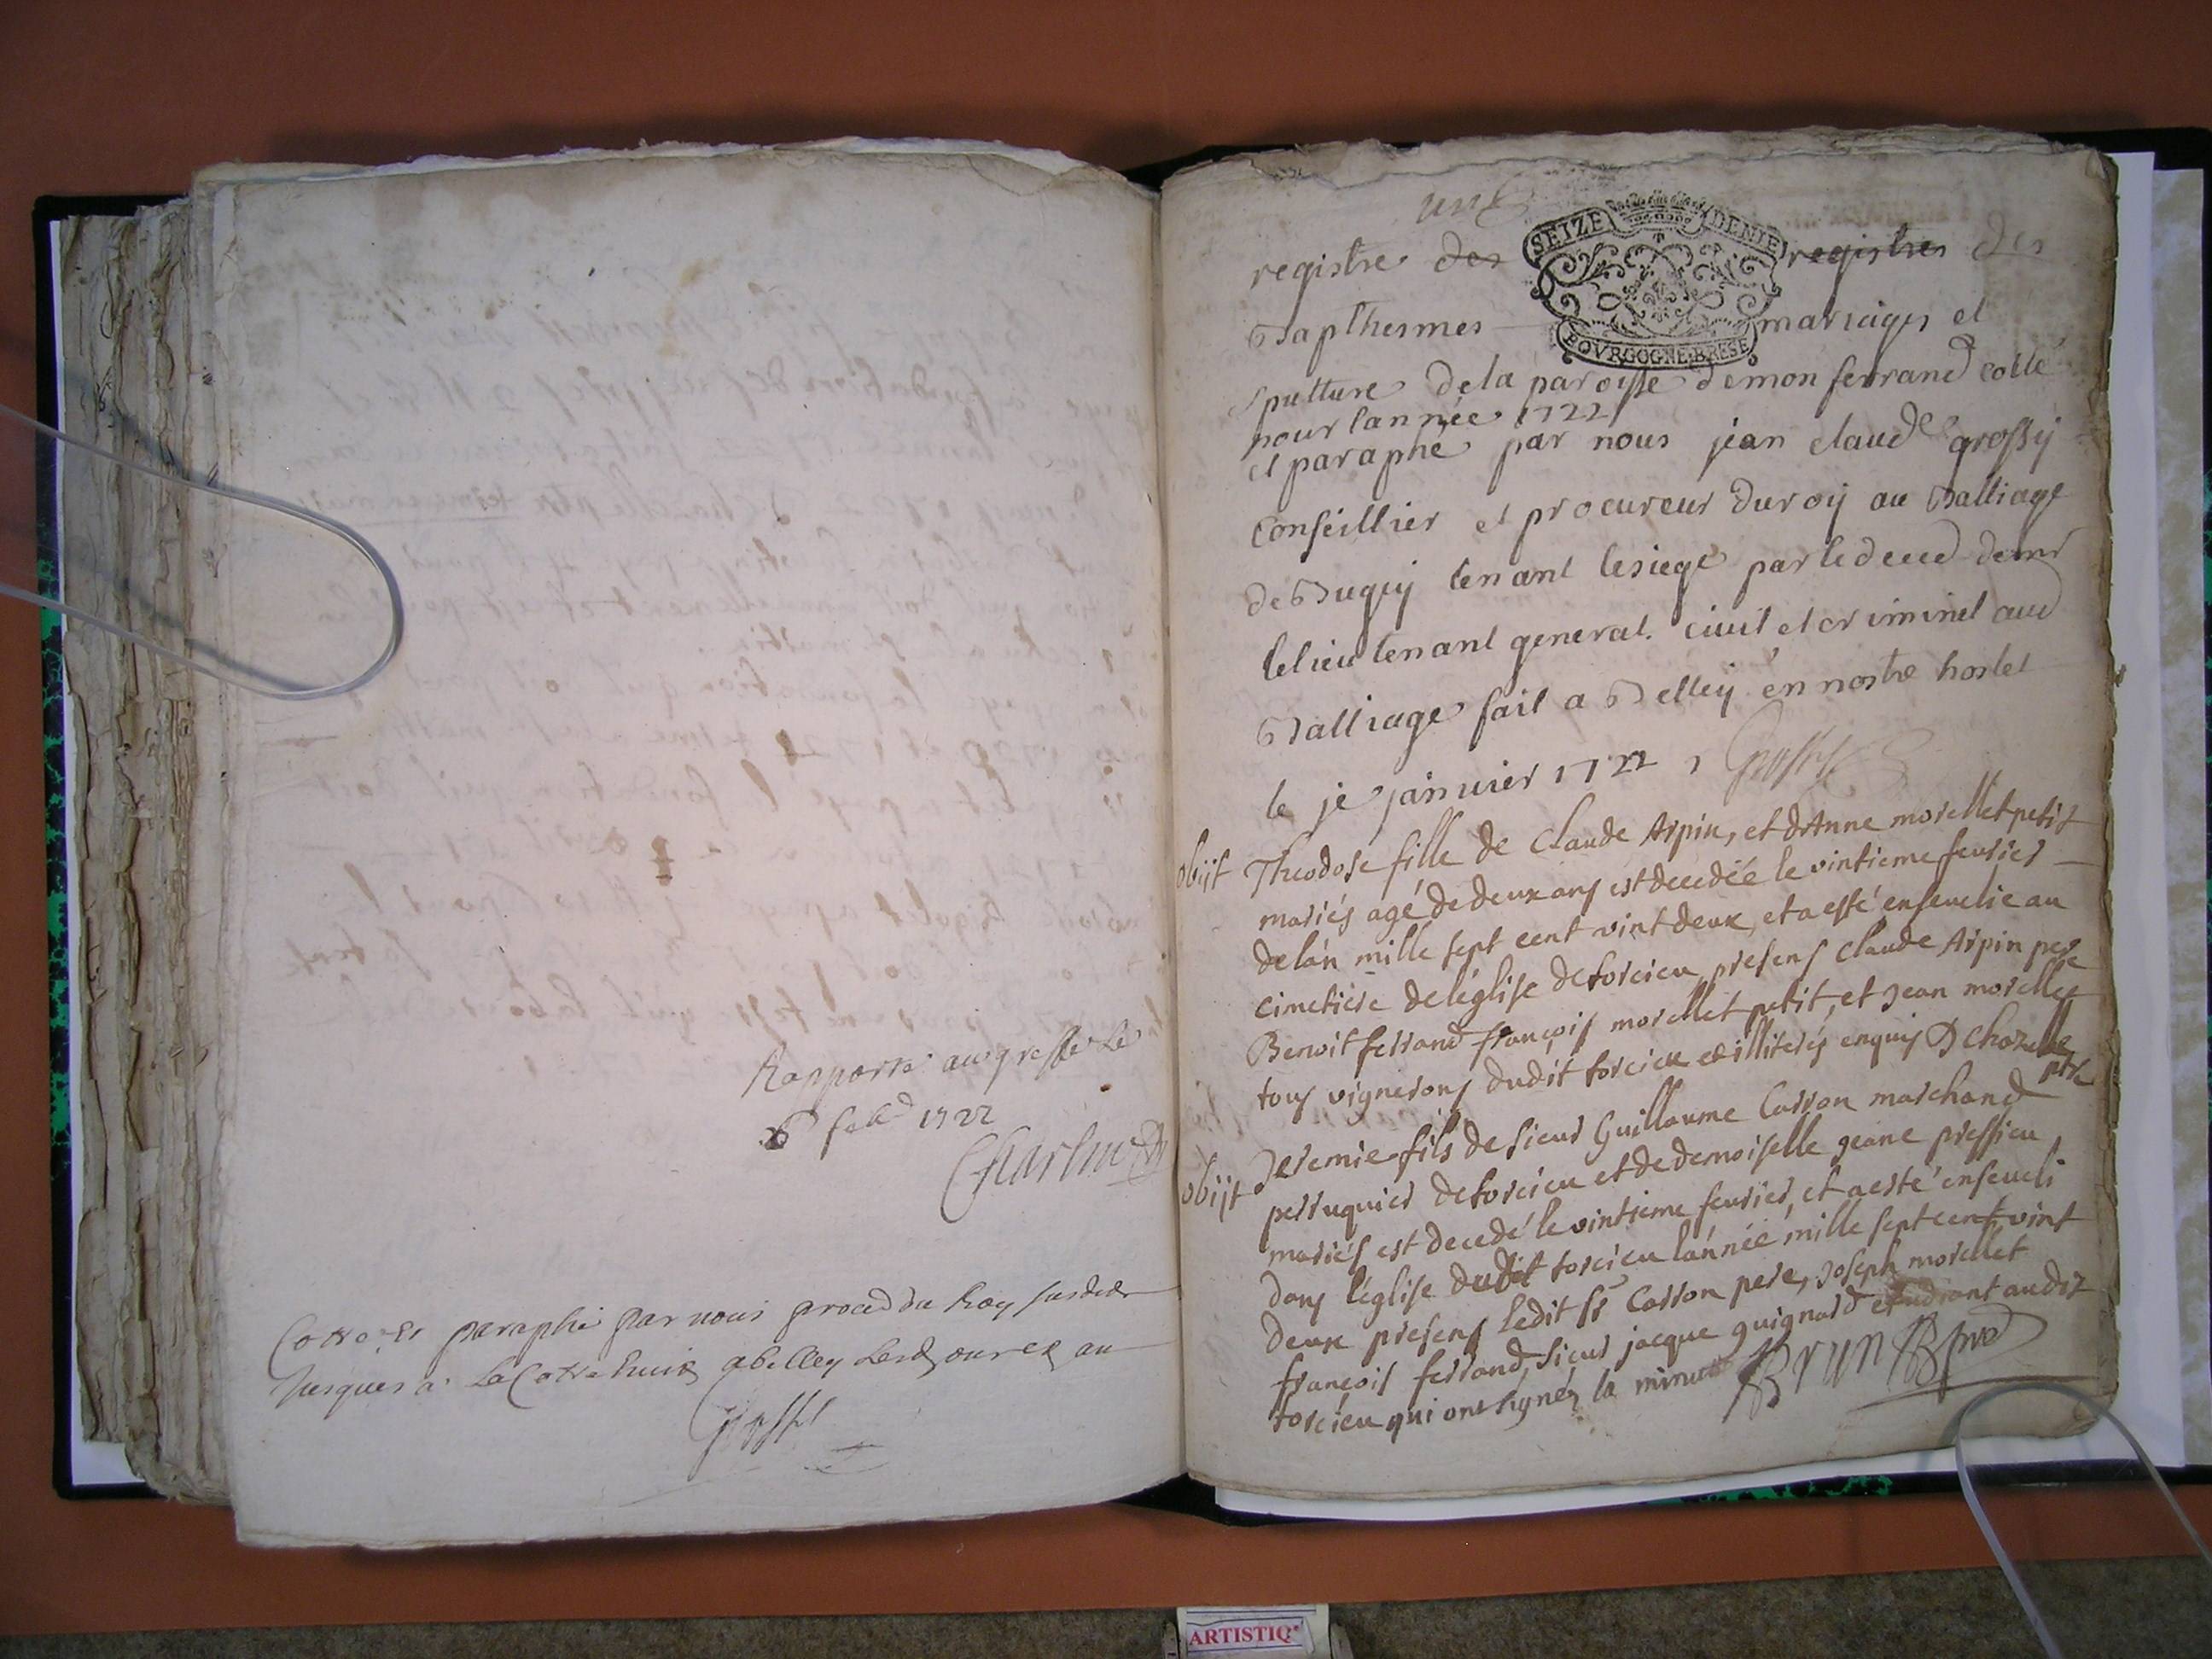 Rapporté au greffe le
6 feb 1722
Cotté et paraphé par nous proc du Roy susdit
jusques a la Cotte huit a belley lesd jour et an
Grossy
une
registre des SEIZE DENIE registres des
Bapthesmes BOVRGOGNE BRESE mariages et
spulture de la paroisse de mon ferrand cotté
pour lannée 1722
et paraphé par nous jean claude grossy
Conseillier et procureur du roy au Balliage
de Bugey tenant le siege par le deced de mr
le lieutenant general civil et criminel aud
Balliage fait a Belley en nostre hostel
le je janvier 1722 Grossy
obijt Theodose fille de Claude Arpin, et dAnne morellet petit
mariés agé de deux ans est decedée le vintieme fevrier
de lan mille sept cent vint deux, et a esté ensevelie au
cimetiere de léglise de torcieu presens Claude Arpin pere
Benoit ferrand françois morellet petit, et Jean morellet
tous vignerons dudit torcieu et illiterés enquis D Chozelle
ptre
obijt Jeremie fils de sieur Guillaume Carron marchand
perruquier de torcieu et de demoiselle geane pressieu
mariés est decedé le vintieme fevrier, et a esté enseveli
dans léglise dudit torcieu lannée mille sept cent vint
deux presens ledit sr Carron pere, Joseph morellet
françois ferrand, sieur jacque guignard etudiant audit
torcieu qui ont signéz la minute Brun